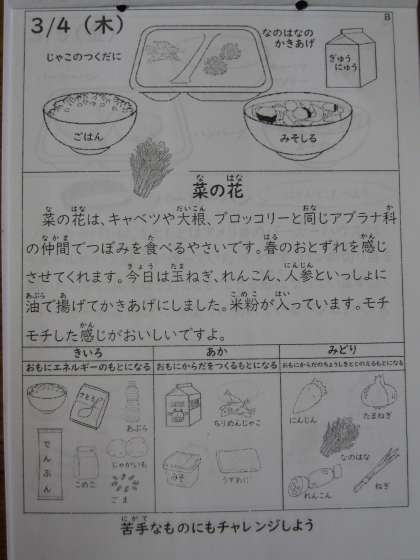 3/4（木）
B
じゃこのつくだに
なのはなの
かきあげ
ぎゅう
にゅう
ごはん
みそしる
な はな
菜の花
な はな だいこん おな か
菜の花は、キャベツや大根、ブロッコリーと同じアブラナ科
なかま た はる かん
の仲間でつぼみを食べるやさいです。春のおとずれを感じ
きょう たま にんじん
させてくれます。今日は玉ねぎ、れんこん、人参といっしょに
あぶら あ こめこ はい
油で揚げてかきあげにしました。米粉が入っています。モチ
かん
モチした感じがおいしいですよ。
きいろ あか みどり
おもにエネルギーのもとになる おもにからだをつくるもとになる おもにからだのちょうしをととのえるもとになる
さとう
あぶら
でんぷん
こめこ
じゃがいも
ごま
ちりめんじゃこ
みそ
うすあげ
にんじん
たまねぎ
なのはな
れんこん
ねぎ
にがて
苦手なものにもチャレンジしよう